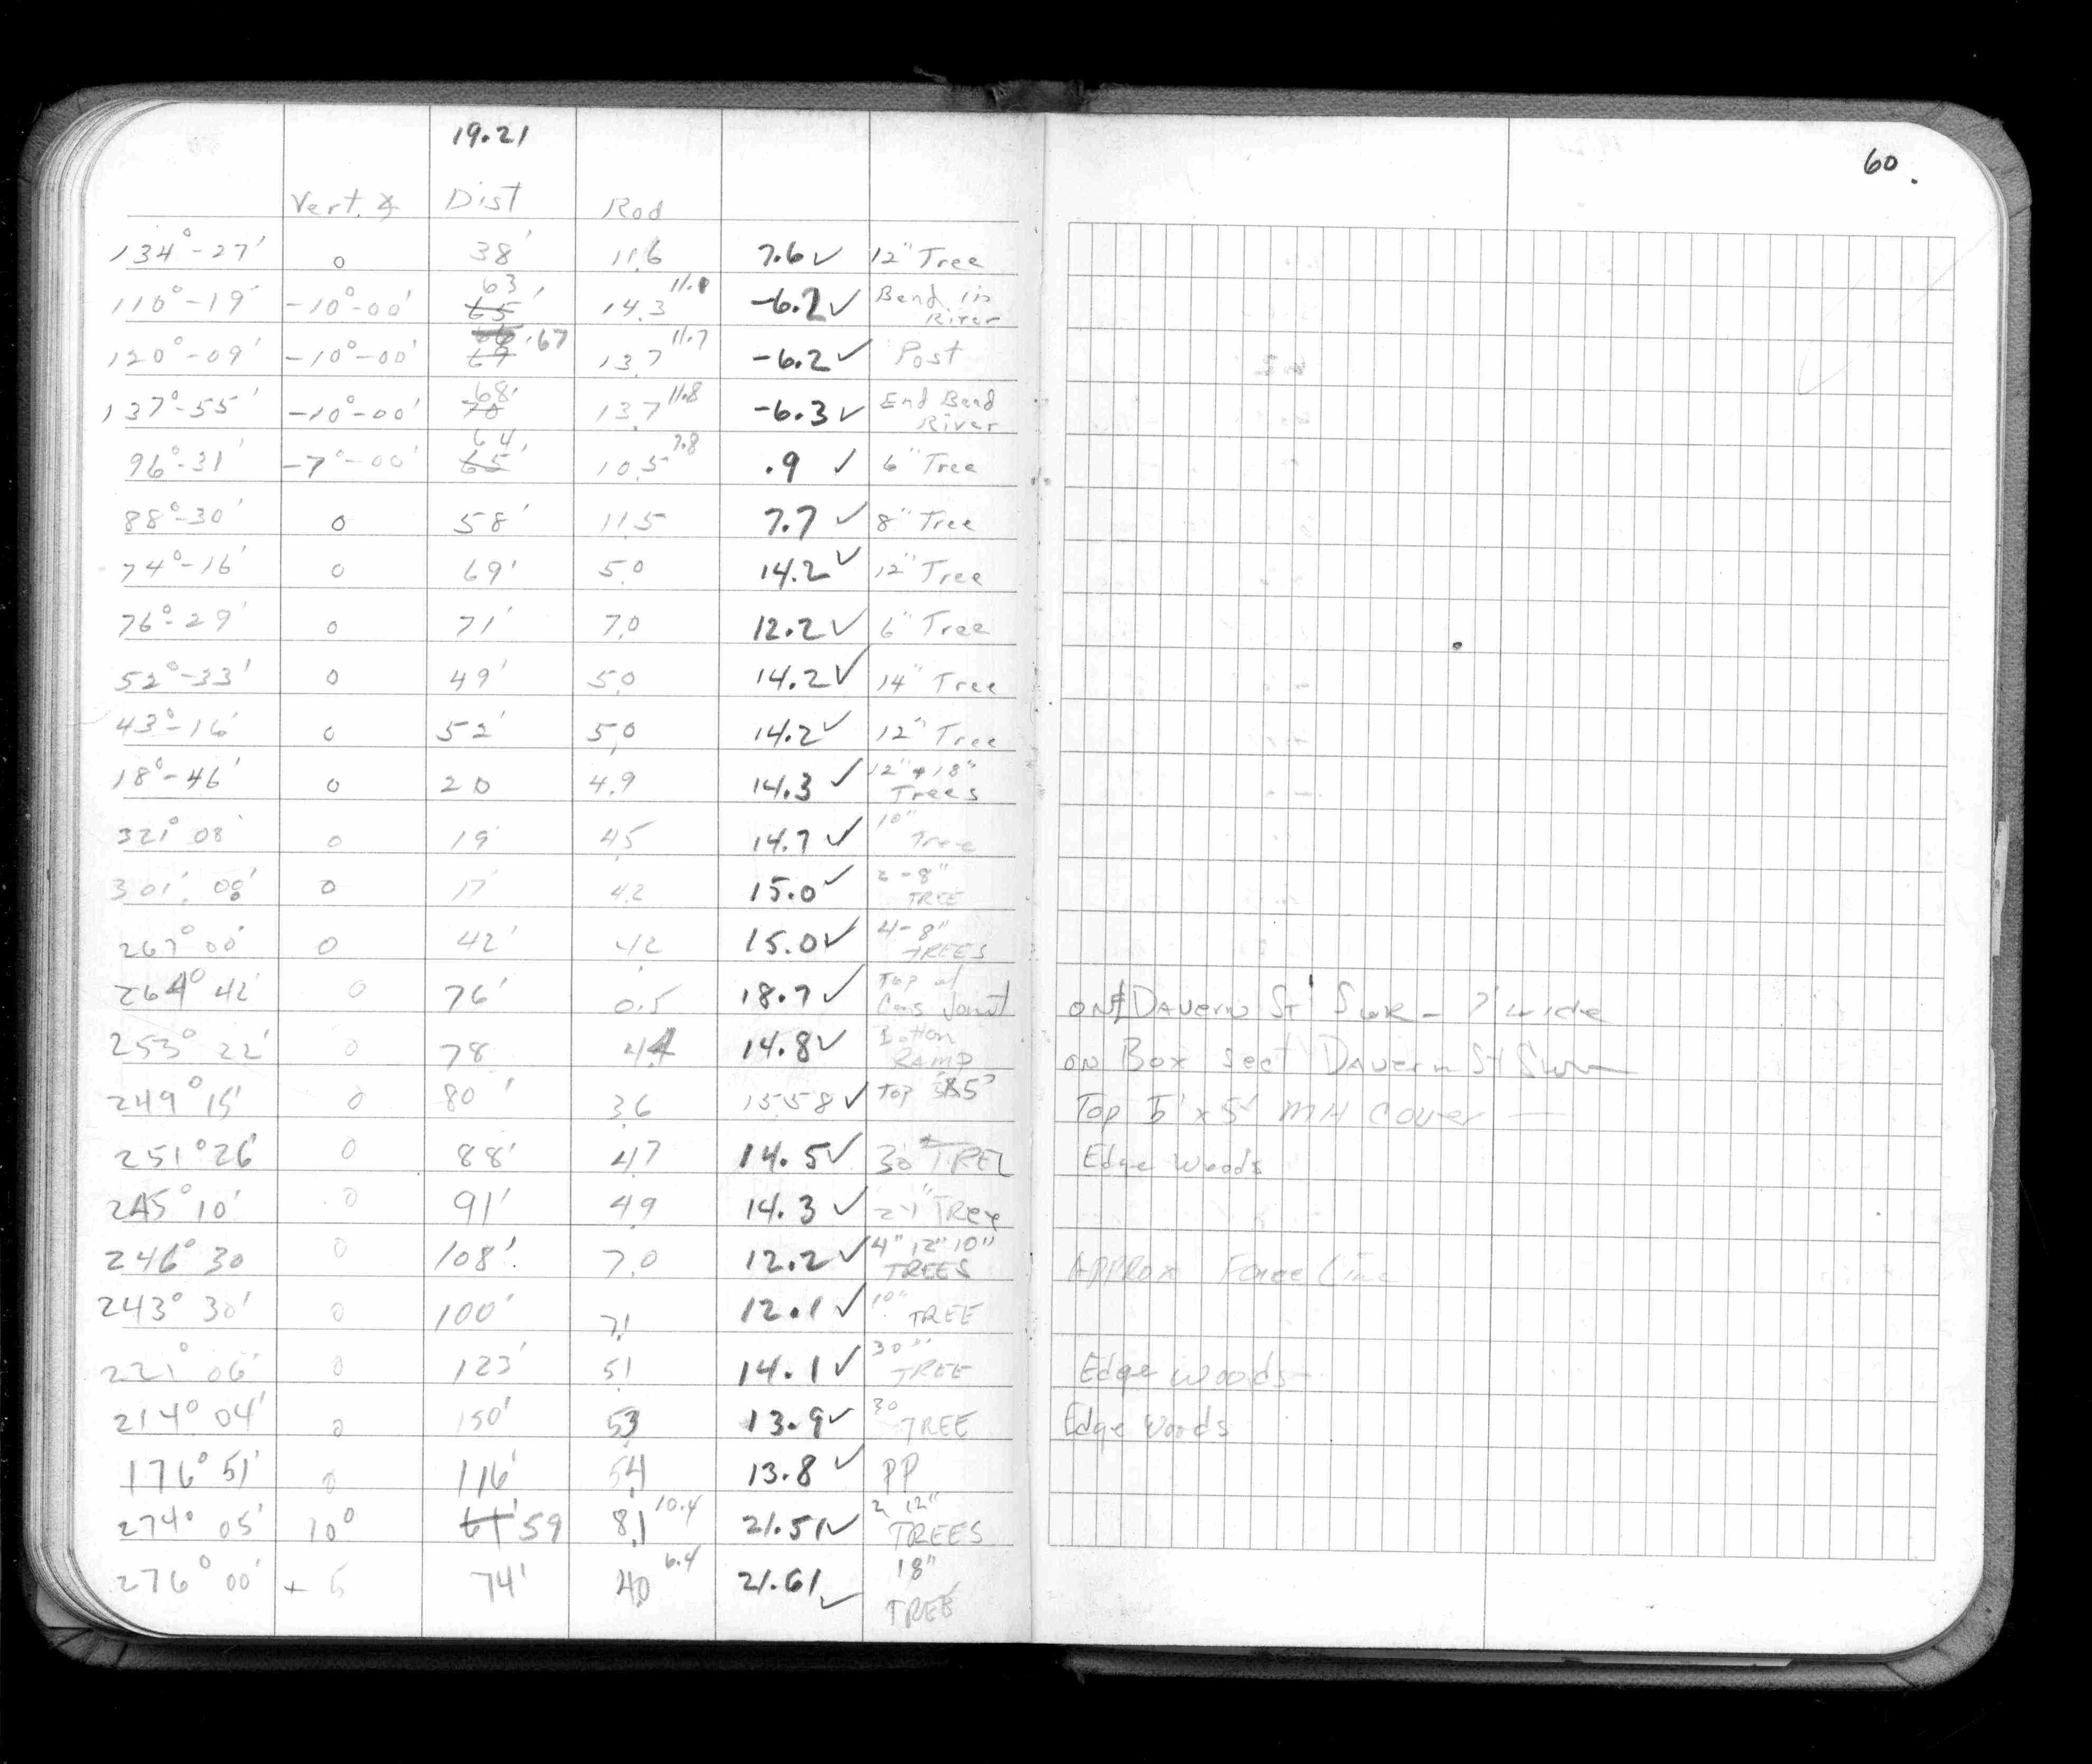 19.21
60.
Vert. ∡ Dist Rod
134°-27' 0 38' 11.6 7.6 ✓ 12" Tree
63' 11.1
110°-19' -10°-00' 65 14.3 -6.2 ✓ Bend in
River
67 11.7
120°-09' -10°-00' 69 13.7 -6.2 ✓ Post
68' 11.8
137°-55' -10°-00' 70 13.7 -6.3 ✓ End Bend
River
64' 7.8
96°-31' -7°-00' 65' 10.5 .9 ✓ 6" Tree
88°-30' 0 58' 11.5 7.7 ✓ 8" Tree
74°-16' 0 69' 5.0 14.2 ✓ 12" Tree
76°-29' 0 71' 7.0 12.2 ✓ 6" Tree
52°-33' 0 49' 5.0 14.2 ✓ 14" Tree
43°-16' 0 52' 5.0 14.2 ✓ 12" Tree
18°-46' 0 20 4.9 14.3 ✓ 12" + 18"
Trees
321° 08' 0 19 4.5 14.7 ✓ 10"
Tree
301° 00' 0 17' 4.2 15.0 ✓ 2-8"
TREE
267° 00' 0 42' 4.2 15.0 ✓ 4-8"
TREES
264° 42' 0 76' 0.5 18.7 ✓ Top of
Cons Joint ON ℄ Davern St Swr - 7' wide
253° 22' 0 78 4.4 14.8 ✓ Bottom
RAMP ON Box Sect Davern St Swr
249° 15' 0 80' 3.6 15.58 ✓ Top 5x5' Top 5' x 5' MH Cover
251° 26' 0 88' 4.7 14.5 ✓ 30" TREE Edge Woods
245° 10' 0 91' 4.9 14.3 ✓ 24" TRee
246° 30 0 108' 7.0 12.2 ✓ 4" 12" 10"
TREES APPROX Fence Line
243° 30' 0 100' 7.1 12.1 ✓ 10"
TREE
221° 06' 0 123' 5.1 14.1 ✓ 30"
TREE Edge Woods
214° 04' 0 150' 5.3 13.9 ✓ 30
TREE Edge Woods
176° 51' 0 116' 5.4 13.8 ✓ PP
274° 05' 10° 61' 59 8.1 10.4 21.51 ✓ 2 12"
TREES
276° 00' + 5 74' 4.0 6.4 21.61 ✓ 18"
TREE